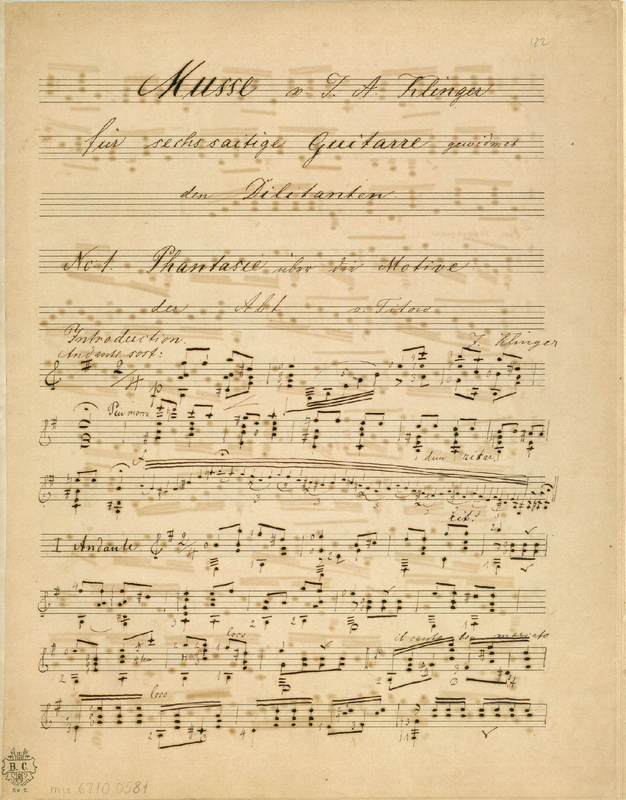 122
Musse v. J. A. Klinger
für sechssaitige Guitarre gewidmet
den Dilitanten
No 1. Phantasie über die Motive
der Akt v. Titow
Introduction. J. Klinger
Andante sost:
p
Piu mosso
dim ritu.
rit.
I Andante
loco
il canto ben marcato
loco
B. C.
mu 6710.0581